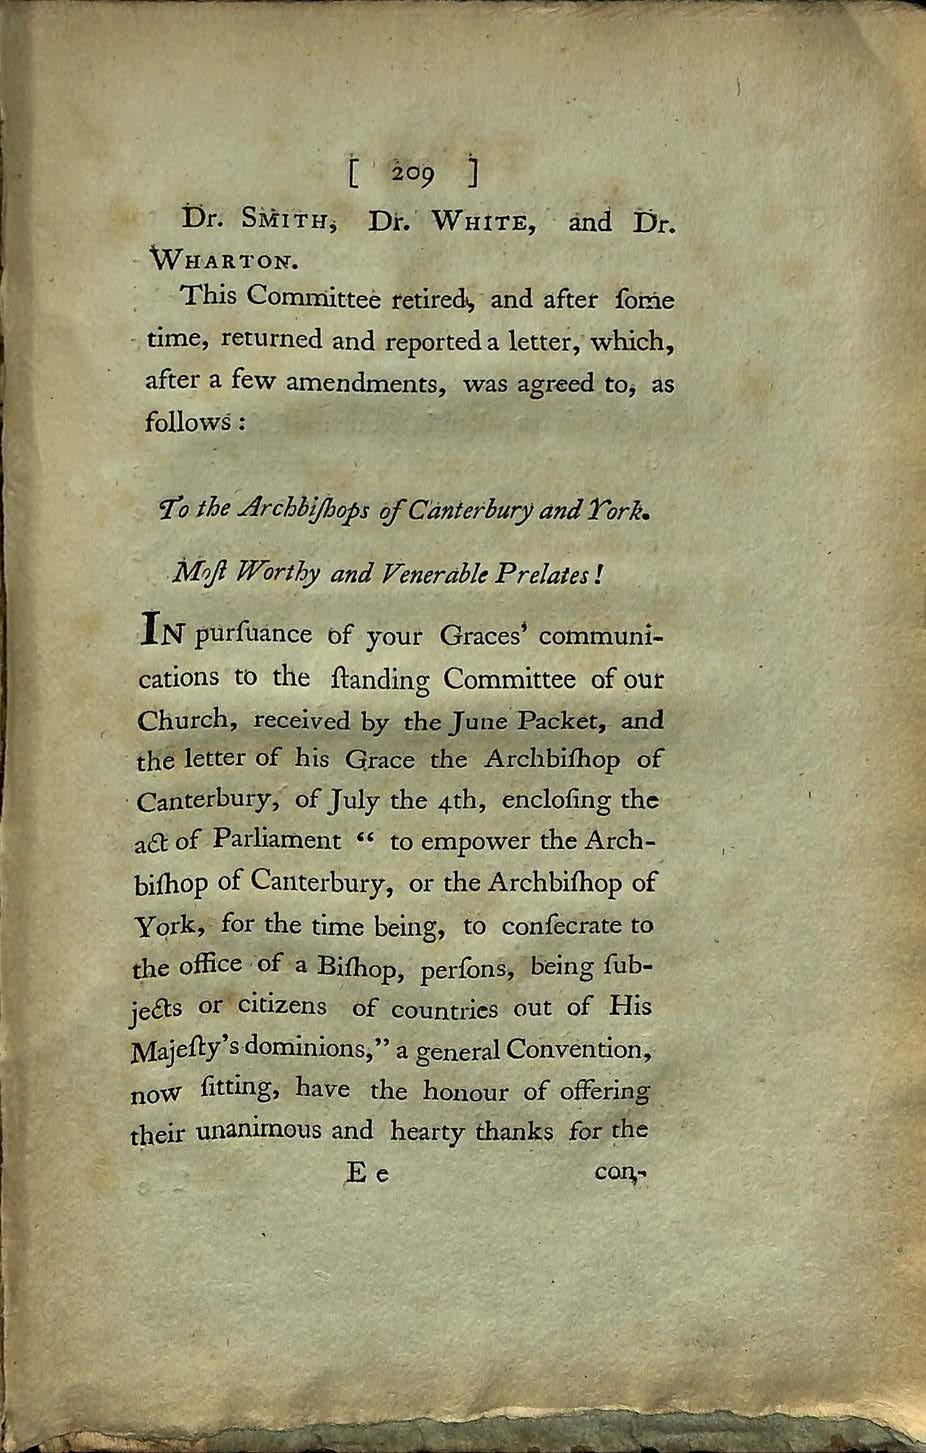 [ 209 ]
Dr. SMITH, Dr. WHITE, and Dr.
WHARTON.
This Committee retired, and after ſome
time, returned and reported a letter, which,
after a few amendments, was agreed to, as
follows :
To the Archbiſhops of Canterbury and York.
Moſt Worthy and Venerable Prelates !
IN purſuance of your Graces' communi-
cations to the ſtanding Committee of our
Church, received by the June Packet, and
the letter of his Grace the Archbiſhop of
Canterbury, of July the 4th, encloſing the
act of Parliament “ to empower the Arch-
biſhop of Canterbury, or the Archbiſhop of
York, for the time being, to conſecrate to
the office of a Biſhop, perſons, being ſub-
jects or citizens of countries out of His
Majeſty's dominions,” a general Convention,
now ſitting, have the honour of offering
their unanimous and hearty thanks for the
E e con-